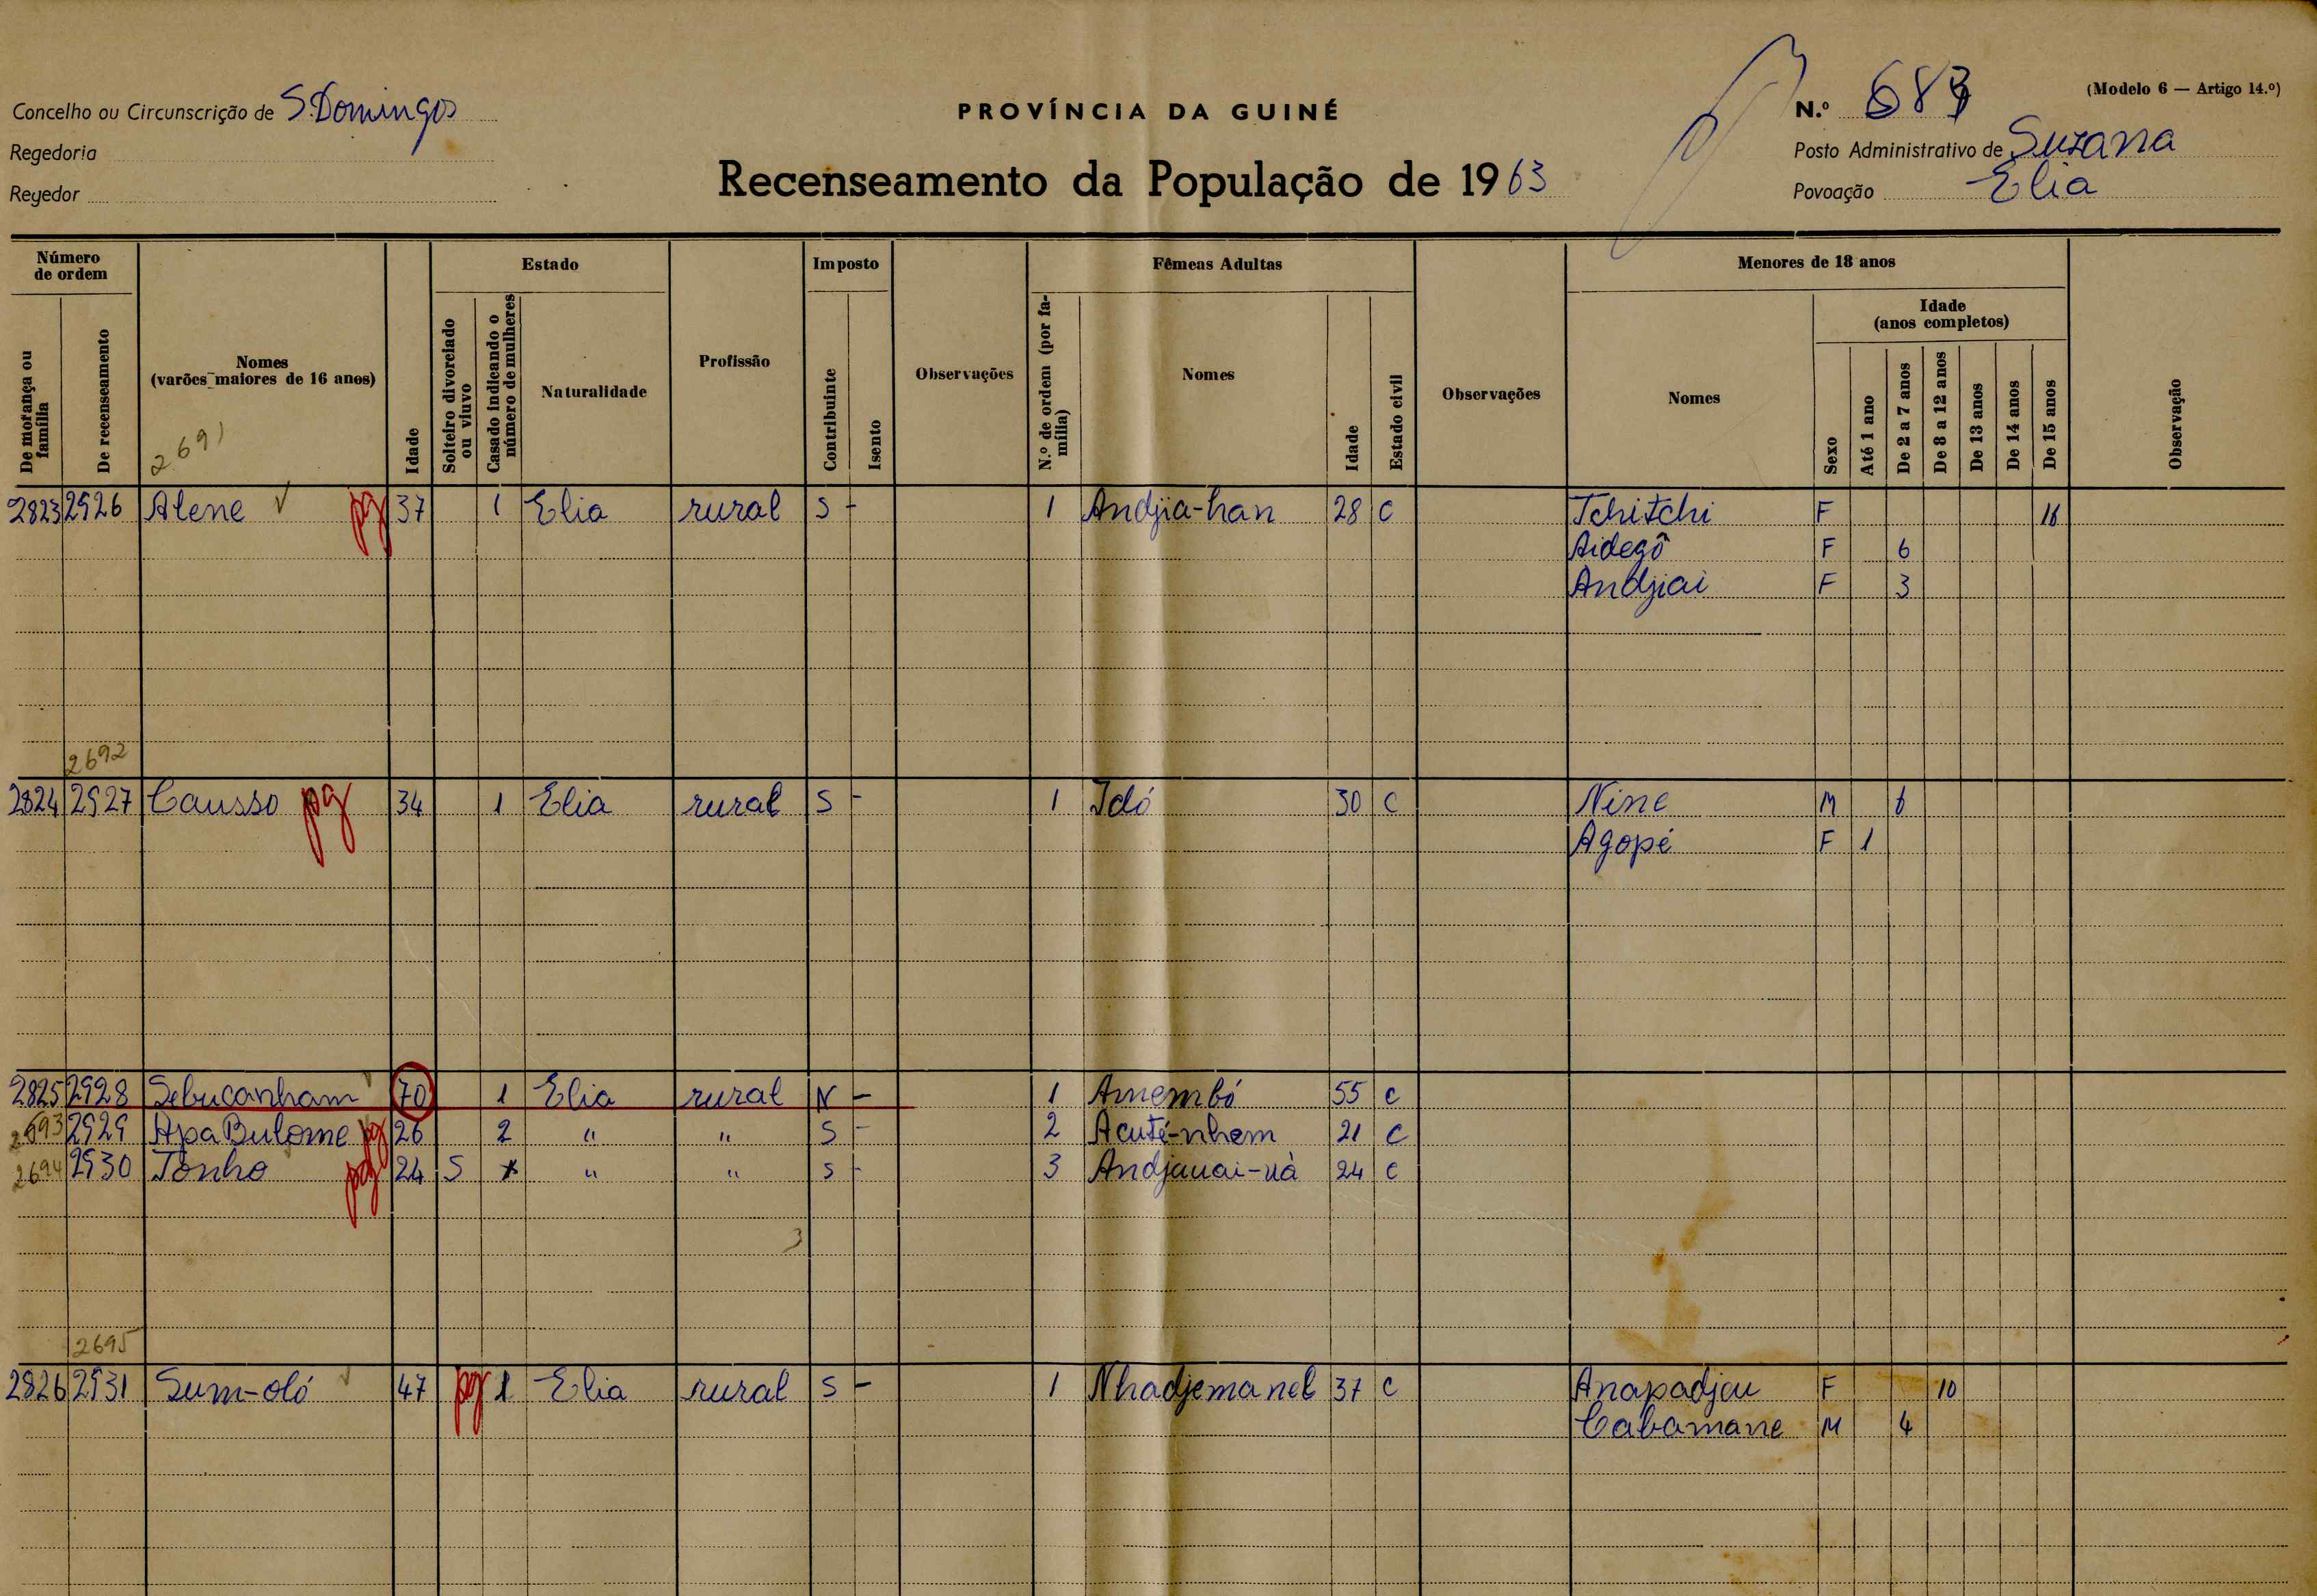 Concelho ou Circunscrição de S. Domingos
PROVÍNCIA DA GUINÉ
N.º
(Modelo 6 — Artigo 14.º)
Regedoria
Recenseamento da População de 1963
Posto Administrativo de Suzana
Regedor
Povoação Elia
Número de ordem
De morança ou família
De recenseamento
Nomes
(varões maiores de 16 anos)
2691
Idade
Estado
Solteiro divorciado ou viuvo
Casado indicando o número de mulheres
Naturalidade
Profissão
Imposto
Contribuinte
Isento
Observações
Fêmeas Adultas
N.º de ordem (por família)
Nomes
Idade
Estado civil
Observações
Menores de 18 anos
Nomes
Sexo
Idade
(anos completos)
Até 1 ano
De 2 a 7 anos
De 8 a 12 anos
De 13 anos
De 14 anos
De 15 anos
Observação
2823 2926 Alene pg 37 1 Elia rural S - 1 Andjia-han 28 C Tchitchi F 16
Aidegô F 6
Andjiai F 3
2692
2824 2927 Causso pg 34 1 Elia rural S - 1 Idó 30 C Nine M 6
Agopé F 1
2825 2928 Sebucanham 70 1 Elia rural N - 1 Amembó 55 C
2693 2929 Apa Bulome pg 26 2 " " S - 2 Acuté-nhem 21 C
2694 2930 Tonho pg 24 S " " S - 3 Andjauai-uà 24 C
3
2695
2826 2931 Sum-oló 47 pg 1 Elia rural S - 1 Nhadjemanel 37 C Anapadjeu F 10
Cabamane M 4